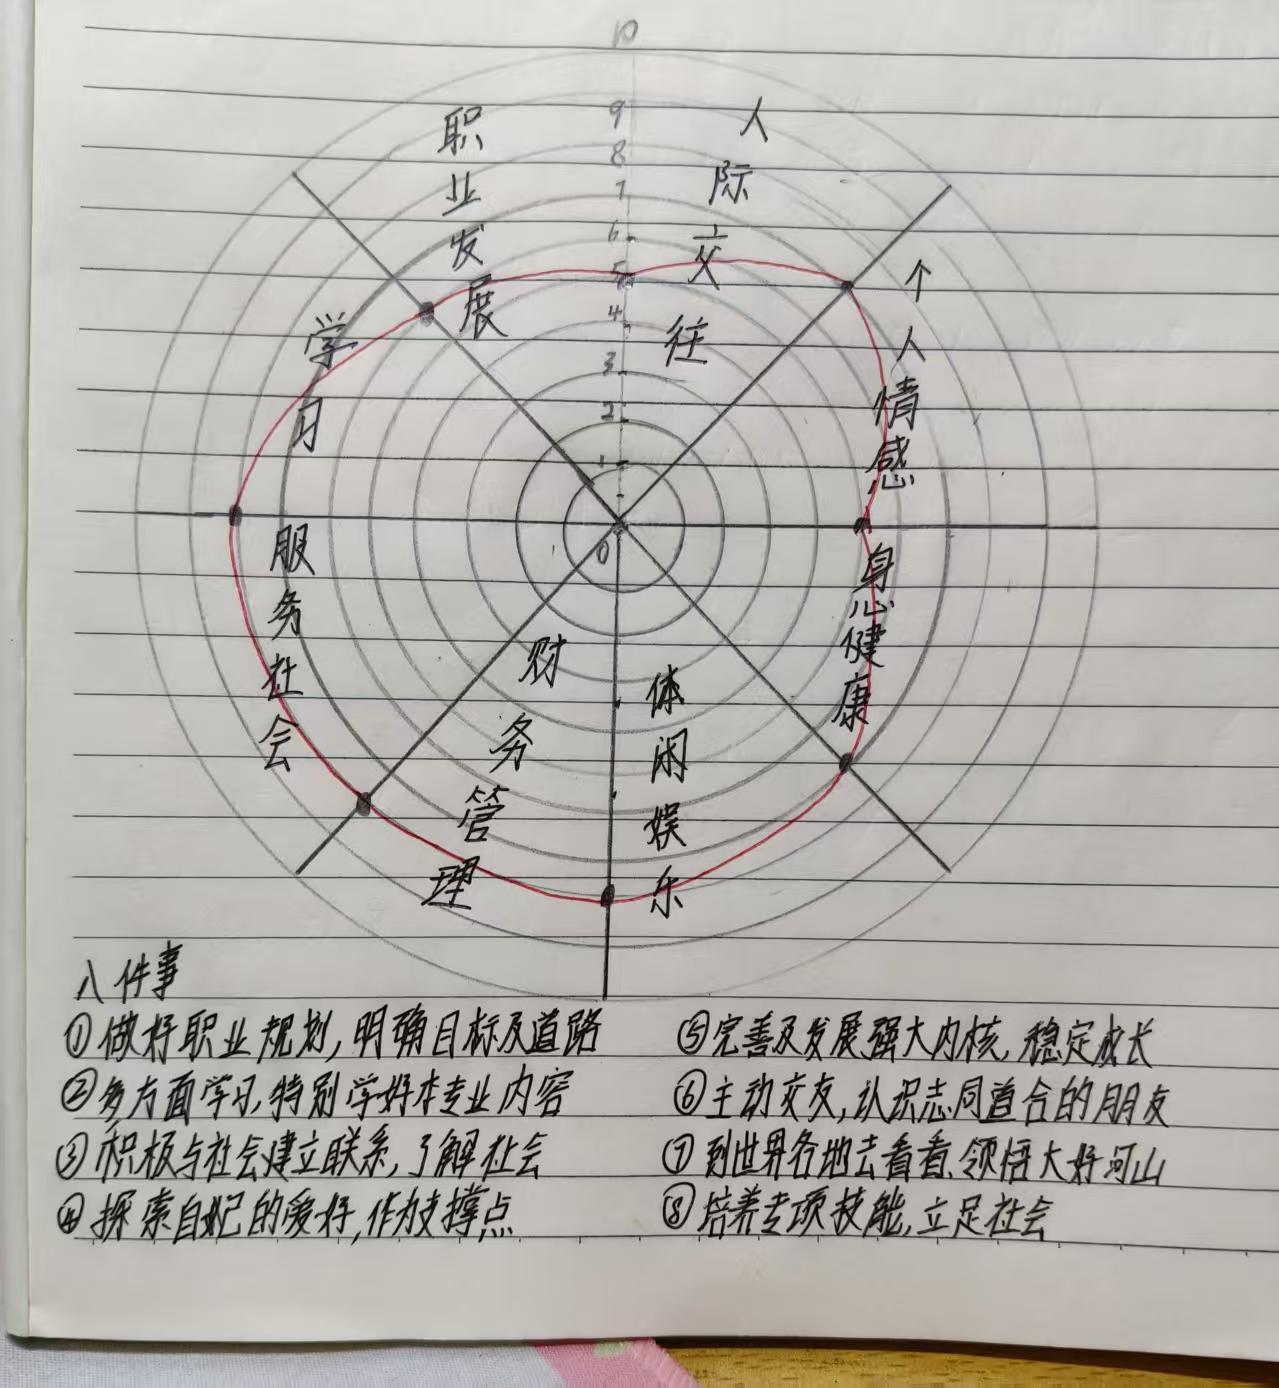 10
9
8
7
6
5
4
3
2
1
0
职业发展
人际交往
个人情感
身心健康
体闲娱乐
财务管理
服务社会
学习
八件事
①做好职业规划,明确目标及道路
②多方面学习,特别学好本专业内容
③积极与社会建立联系,了解社会
④探索自己的爱好,作为支撑点
⑤完善及发展强大内核,稳定成长
⑥主动交友,认识志同道合的朋友
⑦到世界各地去看看,领悟大好河山
⑧培养专项技能,立足社会